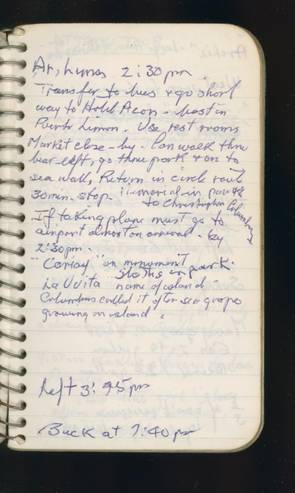 Ar. Limon 2:30 pm
Transfer to bus & go short
way to Hotel Acon - best in
Puerto Limon. Use rest rooms
Market close - by - Can walk thru
bear left, go thru park & on to
sea wall, Return in circle
30 min. stop. memorial in park
to Christopher Columbus
If taking plane must go to
airport almost on arrival - by
2:30 pm.
"Cariay" on monument
Sloths in park.
La Uvita name of island -
Columbus called it after sea grape
growing on island.
Left 3:45 pm
Back at 7:40 pm